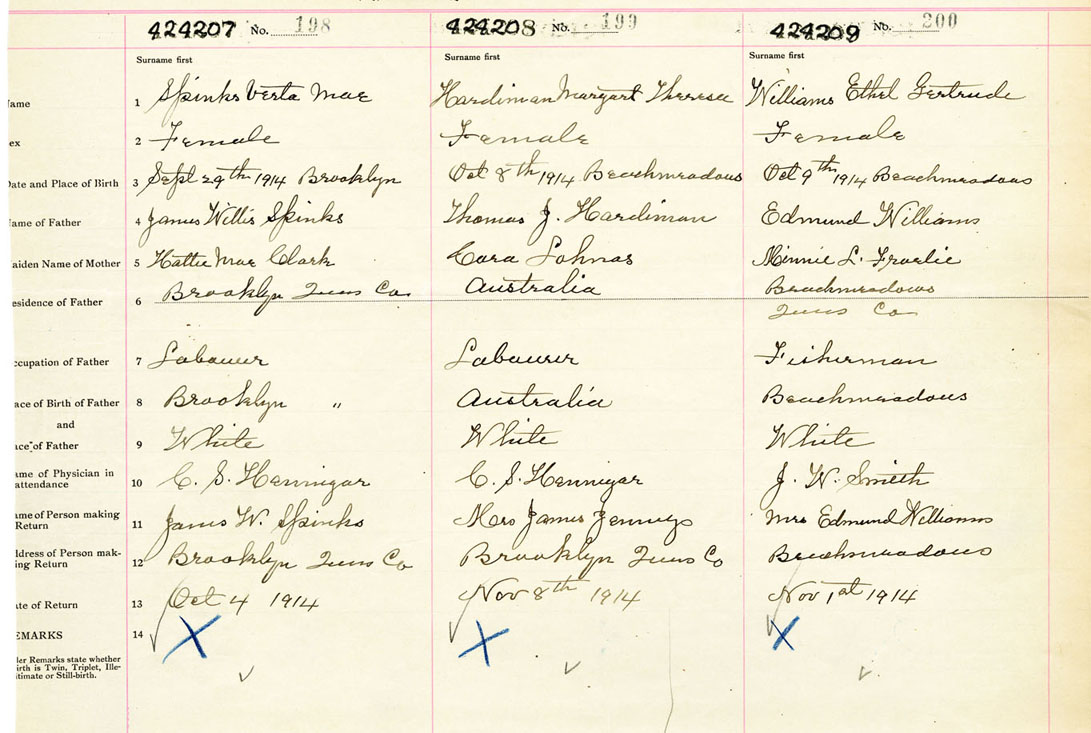 424207 No. 198
424208 No. 199
424209 No. 200
Surname first
Surname first
Surname first
ame
1 Spinks Verta Mae
Hardiman Margart Theresea
Williams Ethel Gertrude
ex
2 Female
Female
Female
Date and Place of Birth
3 Sept 29th 1914 Brooklyn
Oct 8th 1914 Beachmeadows
Oct 9th 1914 Beachmeadows
ame of Father
4 James Willis Spinks
Thomas J. Hardiman
Edmund Williams
aiden Name of Mother
5 Hattie Mae Clark
Cora Lohnas
Minnie L.
esidence of Father
6 Brooklyn Quns Co
Australia
Beachmeadows
Quns Co
ccupation of Father
7 Labourer
Labourer
Fisherman
ace of Birth of Father
8 Brooklyn "
Australia
Beachmeadows
and
ace of Father
9 White
White
White
ame of Physician in
attendance
10 C. S. Hennigar
C. S. Hennigar
J. W. Smith
ame of Person making
Return
11 James W. Spinks
Mrs James
Mrs Edmund Williams
ddress of Person mak-
ing Return
12 Brooklyn Quns Co
Brooklyn Quns Co
Beachmeadows
ate of Return
13 Oct 4 1914
Nov 8th 1914
Nov 1st 1914
EMARKS
14
der Remarks state whether
irth is Twin, Triplet, Ille-
itimate or Still-birth.